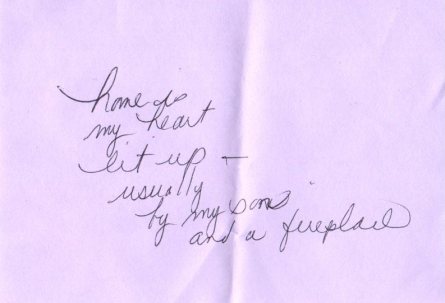 home is
my heart
lit up –
usually
by my sons
and a fireplace